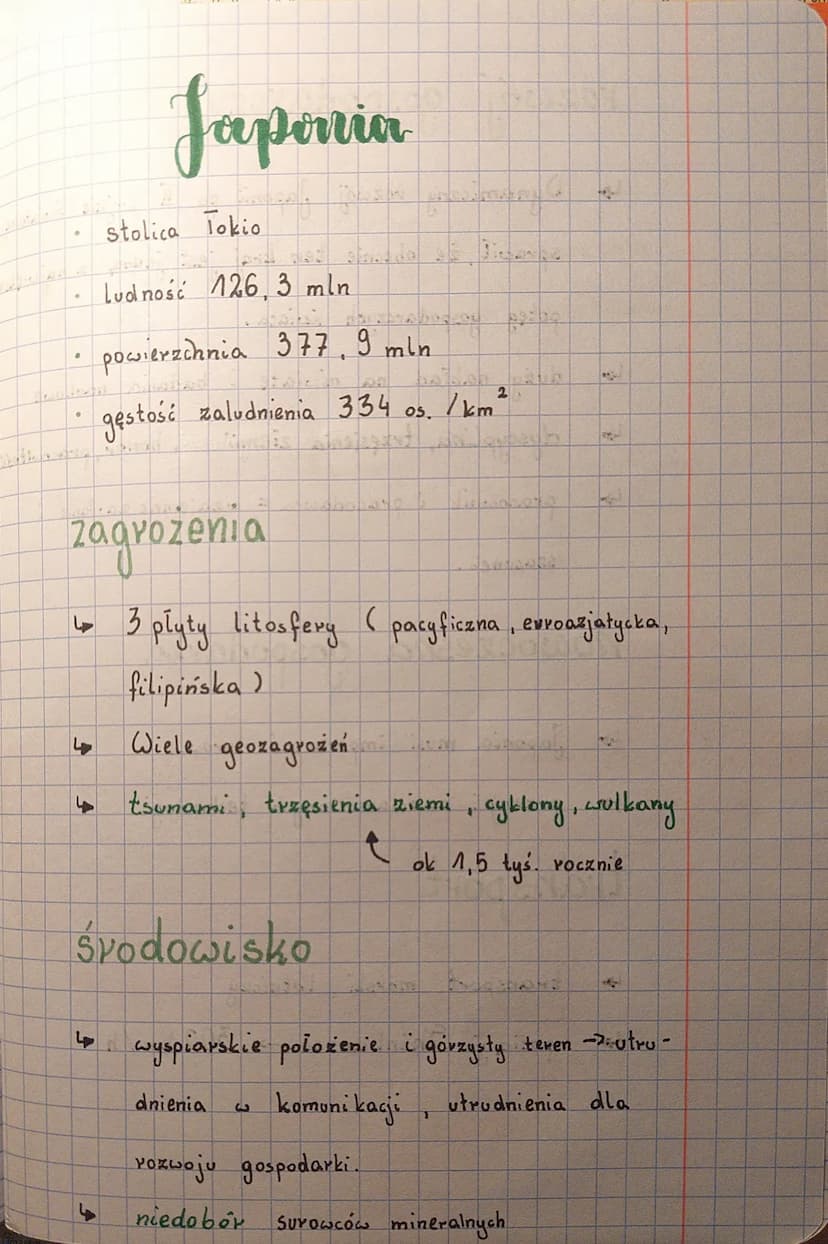 Japonia
· stolica Tokio
· ludność 126,3 mln
· powierzchnia 377,9 mln
· gęstość zaludnienia 334 os. /km²
zagrożenia
↳ 3 płyty litosfery (pacyficzna, euroazjatycka,
filipińska)
↳ Wiele geozagrożeń
↳ tsunami, trzęsienia ziemi, cyklony, wulkany
ok 1,5 tyś. rocznie
środowisko
↳ wyspiarskie położenie i górzysty teren → utru-
dnienia w komunikacji, utrudnienia dla
rozwoju gospodarki.
↳ niedobór surowców mineralnych